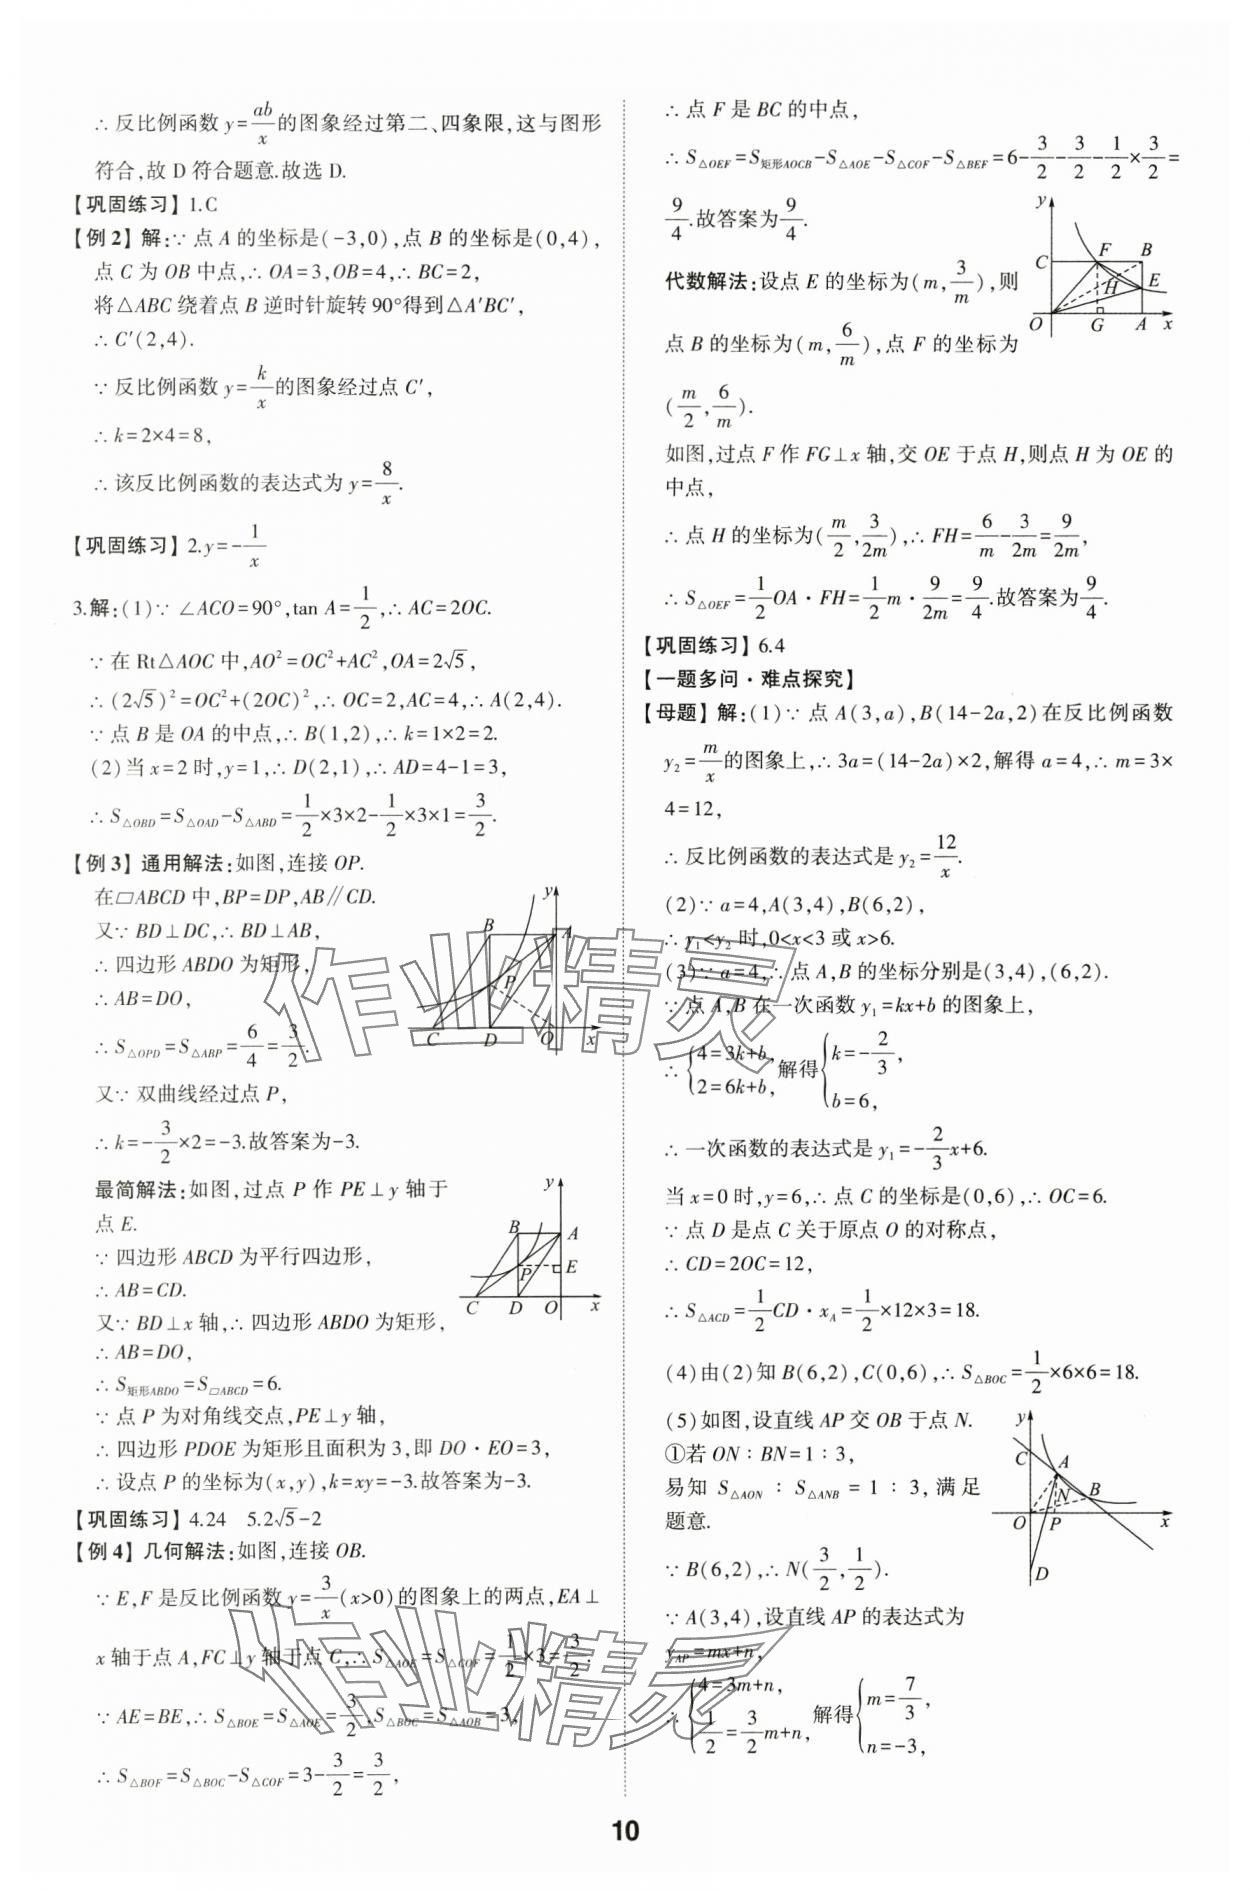 ∴反比例函数 y=ab/x 的图象经过第二、四象限,这与图形
符合,故 D 符合题意.故选 D.
【巩固练习】1.C
【例2】解:∵点 A 的坐标是(-3,0),点 B 的坐标是(0,4),
点 C 为 OB 中点,∴OA=3,OB=4,∴BC=2,
将△ABC 绕着点 B 逆时针旋转 90°得到△A′BC′,
∴C′(2,4).
∵反比例函数 y=k/x 的图象经过点 C′,
∴k=2×4=8,
∴该反比例函数的表达式为 y=8/x.
【巩固练习】2.y=-1/x
3.解:(1)∵∠ACO=90°,tan A=1/2,∴AC=2OC.
∵在 Rt△AOC 中,AO²=OC²+AC²,OA=2√5,
∴(2√5)²=OC²+(2OC)²,∴OC=2,AC=4,∴A(2,4).
∵点 B 是 OA 的中点,∴B(1,2),∴k=1×2=2.
(2)当 x=2 时,y=1,∴D(2,1),∴AD=4-1=3,
∴S△OBD=S△OAD-S△ABD=1/2×3×2-1/2×3×1=3/2.
【例3】通用解法:如图,连接 OP.
在▱ABCD 中,BP=DP,AB∥CD.
又∵BD⊥DC,∴BD⊥AB,
∴四边形 ABDO 为矩形,
∴AB=DO,
∴S△OPD=S△ABP=6/4=3/2.
又∵双曲线经过点 P,
∴k=-3/2×2=-3.故答案为-3.
y
B
A
P
C
D
O
x
最简解法:如图,过点 P 作 PE⊥y 轴于
点 E.
∵四边形 ABCD 为平行四边形,
∴AB=CD.
又∵BD⊥x 轴,∴四边形 ABDO 为矩形,
∴AB=DO,
∴S矩形ABDO=S▱ABCD=6.
∵点 P 为对角线交点,PE⊥y 轴,
∴四边形 PDOE 为矩形且面积为 3,即 DO·EO=3,
∴设点 P 的坐标为(x,y),k=xy=-3.故答案为-3.
y
B
A
P
E
C
D
O
x
【巩固练习】4.24 5.2√5-2
【例4】几何解法:如图,连接 OB.
∵E,F 是反比例函数 y=3/x(x>0)的图象上的两点,EA⊥
x 轴于点 A,FC⊥y 轴于点 C,∴S△AOE=S△COF=1/2×3=3/2.
∵AE=BE,∴S△BOE=S△AOE=3/2,S△BOC=S△AOB=3,
∴S△BOF=S△BOC-S△COF=3-3/2=3/2,
∴点 F 是 BC 的中点,
∴S△OEF=S矩形AOCB-S△AOE-S△COF-S△BEF=6-3/2-3/2-1/2×3/2=
9/4.故答案为9/4.
代数解法:设点 E 的坐标为(m,3/m),则
点 B 的坐标为(m,6/m),点 F 的坐标为
(m/2,6/m).
y
C
F
B
H
E
O
G
A
x
如图,过点 F 作 FG⊥x 轴,交 OE 于点 H,则点 H 为 OE 的
中点,
∴点 H 的坐标为(m/2,3/2m),∴FH=6/m-3/2m=9/2m,
∴S△OEF=1/2OA·FH=1/2m·9/2m=9/4.故答案为9/4.
【巩固练习】6.4
【一题多问·难点探究】
【母题】解:(1)∵点 A(3,a),B(14-2a,2)在反比例函数
y₂=m/x的图象上,∴3a=(14-2a)×2,解得 a=4,∴m=3×
4=12,
∴反比例函数的表达式是 y₂=12/x.
(2)∵a=4,A(3,4),B(6,2),
∴y₁<y₂ 时,0<x<3 或 x>6.
(3)∵a=4,∴点 A,B 的坐标分别是(3,4),(6,2).
∵点 A,B 在一次函数 y₁=kx+b 的图象上,
∴{4=3k+b, 2=6k+b, 解得{k=-2/3, b=6,
∴一次函数的表达式是 y₁=-2/3x+6.
当 x=0 时,y=6,∴点 C 的坐标是(0,6),∴OC=6.
∵点 D 是点 C 关于原点 O 的对称点,
∴CD=2OC=12,
∴S△ACD=1/2CD·xA=1/2×12×3=18.
(4)由(2)知 B(6,2),C(0,6),∴S△BOC=1/2×6×6=18.
(5)如图,设直线 AP 交 OB 于点 N.
①若 ON∶BN=1∶3,
易知 S△AON∶S△ANB=1∶3,满足
题意.
y
C
A
N
B
O
P
x
D
∵B(6,2),∴N(3/2,1/2).
∵A(3,4),设直线 AP 的表达式为
yAP=mx+n,
∴{4=3m+n, 1/2=3/2m+n, 解得{m=7/3, n=-3,
作业精灵
作业精灵
10